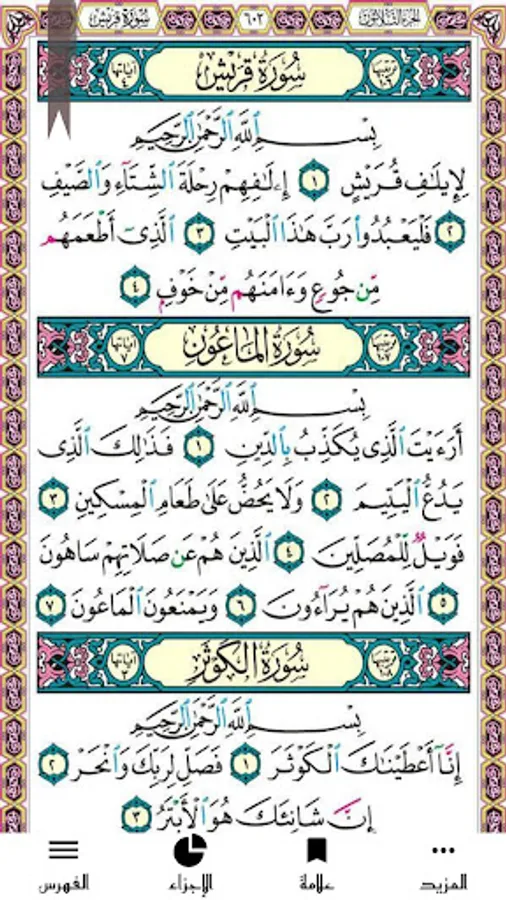 الجزء الثلاثون ٦٠٢ سورة قريش
ترتيبها ١٠٦ سُورَةُ قُرَيْشٍ آياتها ٤
بِسْمِ ٱللَّهِ ٱلرَّحْمَٰنِ ٱلرَّحِيمِ
لِإِيلَٰفِ قُرَيْشٍ ١ إِۦلَٰفِهِمْ رِحْلَةَ ٱلشِّتَآءِ وَٱلصَّيْفِ
٢ فَلْيَعْبُدُوا۟ رَبَّ هَٰذَا ٱلْبَيْتِ ٣ ٱلَّذِىٓ أَطْعَمَهُم
مِّن جُوعٍ وَءَامَنَهُم مِّنْ خَوْفٍۭ ٤
ترتيبها ١٠٧ سُورَةُ المَاعُونِ آياتها ٧
بِسْمِ ٱللَّهِ ٱلرَّحْمَٰنِ ٱلرَّحِيمِ
أَرَءَيْتَ ٱلَّذِى يُكَذِّبُ بِٱلدِّينِ ١ فَذَٰلِكَ ٱلَّذِى
يَدُعُّ ٱلْيَتِيمَ ٢ وَلَا يَحُضُّ عَلَىٰ طَعَامِ ٱلْمِسْكِينِ ٣
فَوَيْلٌ لِّلْمُصَلِّينَ ٤ ٱلَّذِينَ هُمْ عَن صَلَاتِهِمْ سَاهُونَ
٥ ٱلَّذِينَ هُمْ يُرَآءُونَ ٦ وَيَمْنَعُونَ ٱلْمَاعُونَ ٧
ترتيبها ١٠٨ سُورَةُ الكَوْثَرِ آياتها ٣
بِسْمِ ٱللَّهِ ٱلرَّحْمَٰنِ ٱلرَّحِيمِ
إِنَّآ أَعْطَيْنَٰكَ ٱلْكَوْثَرَ ١ فَصَلِّ لِرَبِّكَ وَٱنْحَرْ ٢
إِنَّ شَانِئَكَ هُوَ ٱلْأَبْتَرُ ٣
المزيد علامة الإجزاء الفهرس